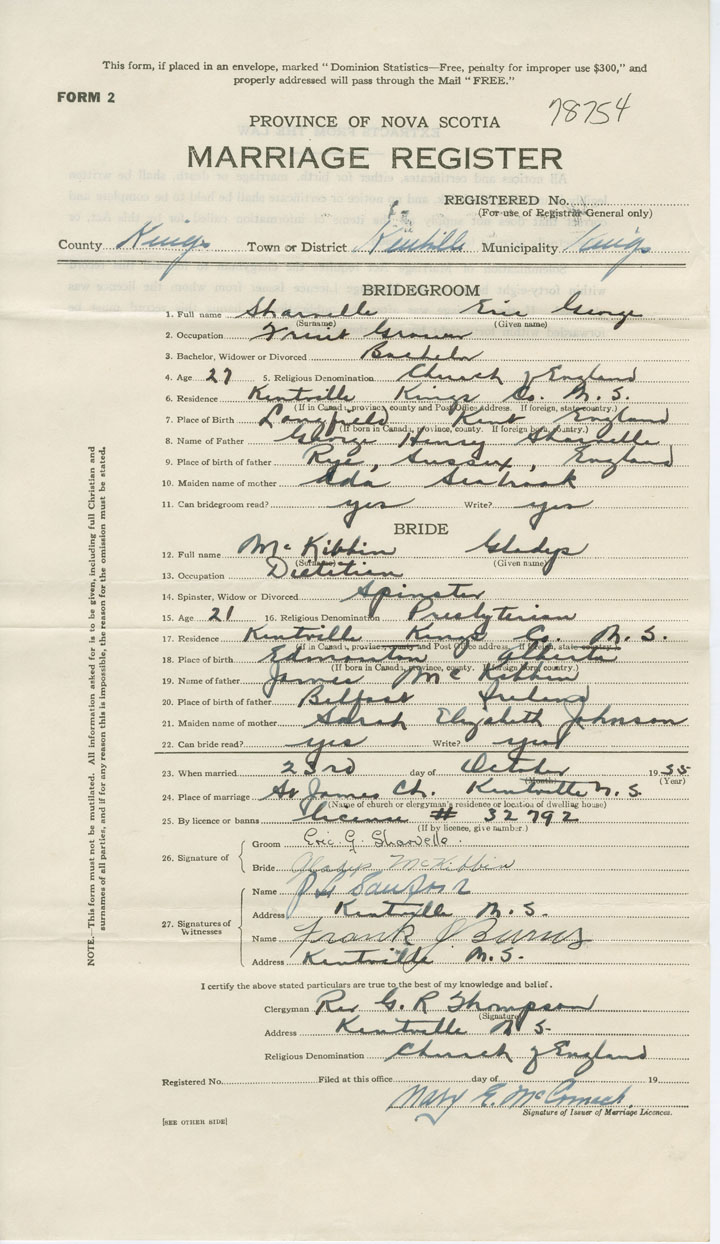 This form, if placed in an envelope, marked "Dominion Statistics—Free, penalty for improper use $300," and
properly addressed will pass through the Mail "FREE."
FORM 2
78754
PROVINCE OF NOVA SCOTIA
MARRIAGE REGISTER
REGISTERED No.
(For use of Registrar General only)
County Kings Town or District Kentville Municipality Kings
BRIDEGROOM
1. Full name Sharvelle Eric George
(Surname) (Given name)
2. Occupation Fruit Grower
3. Bachelor, Widower or Divorced Bachelor
4. Age 27 5. Religious Denomination Church of England
6. Residence Kentville Kings Co. N.S.
(If in Canada, province, county and Post Office address. If foreign, state country.)
7. Place of Birth Longfield Kent England
(If born in Canada, province, county. If foreign born, country.)
8. Name of Father George Henry Sharvelle
9. Place of birth of father Rye, Sussex, England
10. Maiden name of mother Ada Seabrook
11. Can bridegroom read? yes Write? yes
BRIDE
12. Full name McKibbin Gladys
(Surname) (Given name)
13. Occupation Dietitien
14. Spinster, Widow or Divorced Spinster
15. Age 21 16. Religious Denomination Presbyterian
17. Residence Kentville Kings Co. N.S.
(If in Canada, province, county and Post Office address. If foreign, state country.)
18. Place of birth Edmonton Alberta
(If born in Canada, province, county. If foreign born, country.)
19. Name of father James McKibbin
20. Place of birth of father Belfast Ireland
21. Maiden name of mother Sarah Elizabeth Johnson
22. Can bride read? yes Write? yes
23. When married 23rd day of October 1955
(Month) (Year)
24. Place of marriage St James Ch. Kentville N.S.
(Name of church or clergyman's residence or location of dwelling house)
25. By licence or banns license # 32792
(If by licence, give number.)
26. Signature of
Groom Eric G. Sharvelle.
Bride Gladys McKibbin
27. Signatures of Witnesses
Name
Address Kentville N.S.
Name Frank J Burns
Address Kentville N.S.
I certify the above stated particulars are true to the best of my knowledge and belief.
Clergyman Rev G. R Thompson
(Signature)
Address Kentville N S.
Religious Denomination Church of England
Registered No. Filed at this office day of 19
Mary E. McCormack.
Signature of Issuer of Marriage Licences.
[SEE OTHER SIDE]
NOTE.—This form must not be mutilated. All information asked for is to be given, including full Christian and
surnames of all parties, and if for any reason this is impossible, the reason for the omission must be stated.